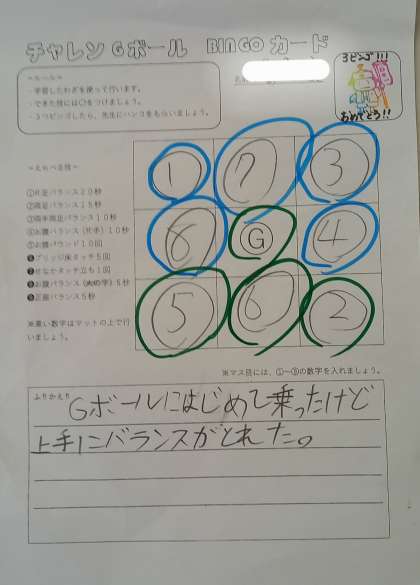 チャレンGボール BINGOカード
3ビンゴ!!!
おめでとう!!
~ルール~
・学習したわざを使って行います。
・できた技には〇をつけましょう。
・3つビンゴしたら、先生にハンコをもらいましょう。
~えらべる技~
①片足バランス20秒
②両足バランス15秒
③両手両足バランス10秒
④お腹バランス(片手)10秒
⑤お腹バウンド10回
❻ブリッジ床タッチ5回
❼せなかタッチ立ち1回
❽お腹バランス(大の字)5秒
❾正座バランス5秒
※黒い数字はマットの上で行
いましょう。
1 7 3
8 G 4
5 6 2
※マス目には、①~❾の数字を入れましょう。
ふりかえり
Gボールにはじめて乗ったけど
上手にバランスがとれた。